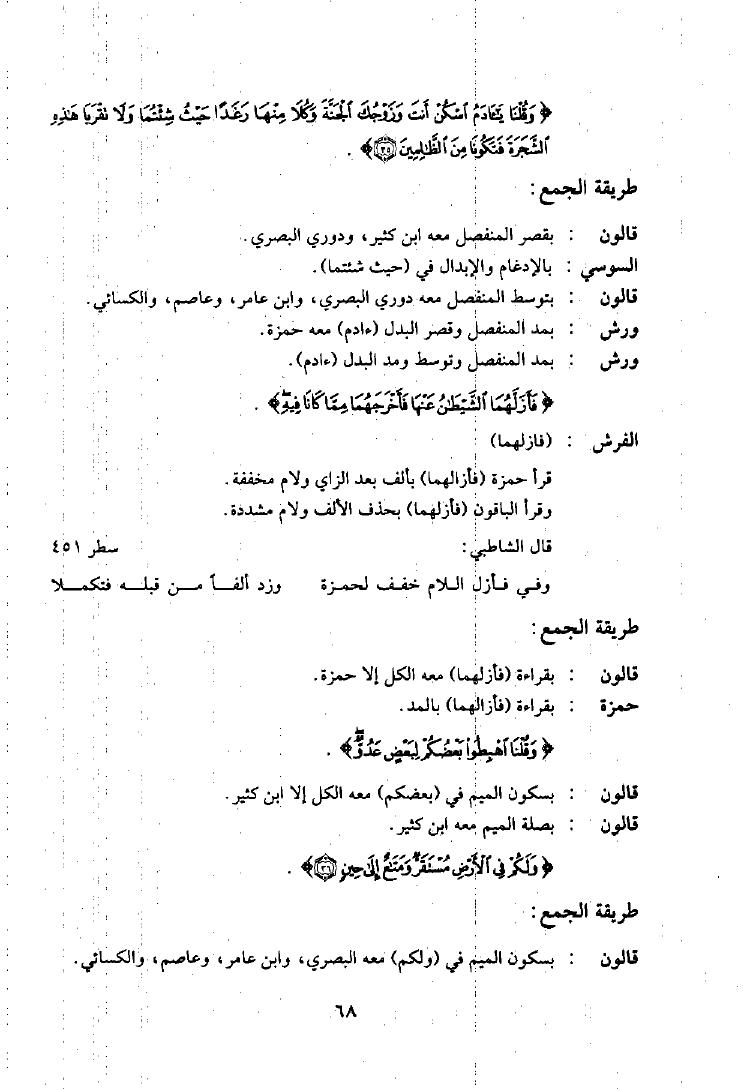 ﴿ وَقُلْنَا يَٰٓـَٔادَمُ ٱسْكُنْ أَنتَ وَزَوْجُكَ ٱلْجَنَّةَ وَكُلَا مِنْهَا رَغَدًا حَيْثُ شِئْتُمَا وَلَا تَقْرَبَا هَٰذِهِ
ٱلشَّجَرَةَ فَتَكُونَا مِنَ ٱلظَّٰلِمِينَ ٣٥ ﴾ .
طريقة الجمع:
قالون : بقصر المنفصل معه ابن كثير، ودوري البصري.
السوسي : بالإدغام والإبدال في (حيث شئتما).
قالون : بتوسط المنفصل معه دوري البصري، وابن عامر، وعاصم، والكسائي.
ورش : بمد المنفصل وقصر البدل (ءادم) معه حمزة.
ورش : بمد المنفصل وتوسط ومد البدل (ءادم).
﴿ فَأَزَلَّهُمَا ٱلشَّيْطَٰنُ عَنْهَا فَأَخْرَجَهُمَا مِمَّا كَانَا فِيهِۖ ﴾ .
الفرش : (فازلهما)
قرأ حمزة (فأزالهما) بألف بعد الزاي ولام مخففة.
وقرأ الباقون (فأزلهما) بحذف الألف ولام مشددة.
قال الشاطبي: سطر ٤٥١
وفي فأزل اللام خفف لحمزة وزد ألفاً من قبله فتكملا
طريقة الجمع:
قالون : بقراءة (فأزلهما) معه الكل إلا حمزة.
حمزة : بقراءة (فأزالهما) بالمد.
﴿ وَقُلْنَا ٱهْبِطُوا۟ بَعْضُكُمْ لِبَعْضٍ عَدُوٌّۖ ﴾ .
قالون : بسكون الميم في (بعضكم) معه الكل إلا ابن كثير.
قالون : بصلة الميم معه ابن كثير.
﴿ وَلَكُمْ فِي ٱلْأَرْضِ مُسْتَقَرٌّ وَمَتَٰعٌ إِلَىٰ حِينٍ ٣٦ ﴾ .
طريقة الجمع:
قالون : بسكون الميم في (ولكم) معه البصري، وابن عامر، وعاصم، والكسائي.
٦٨